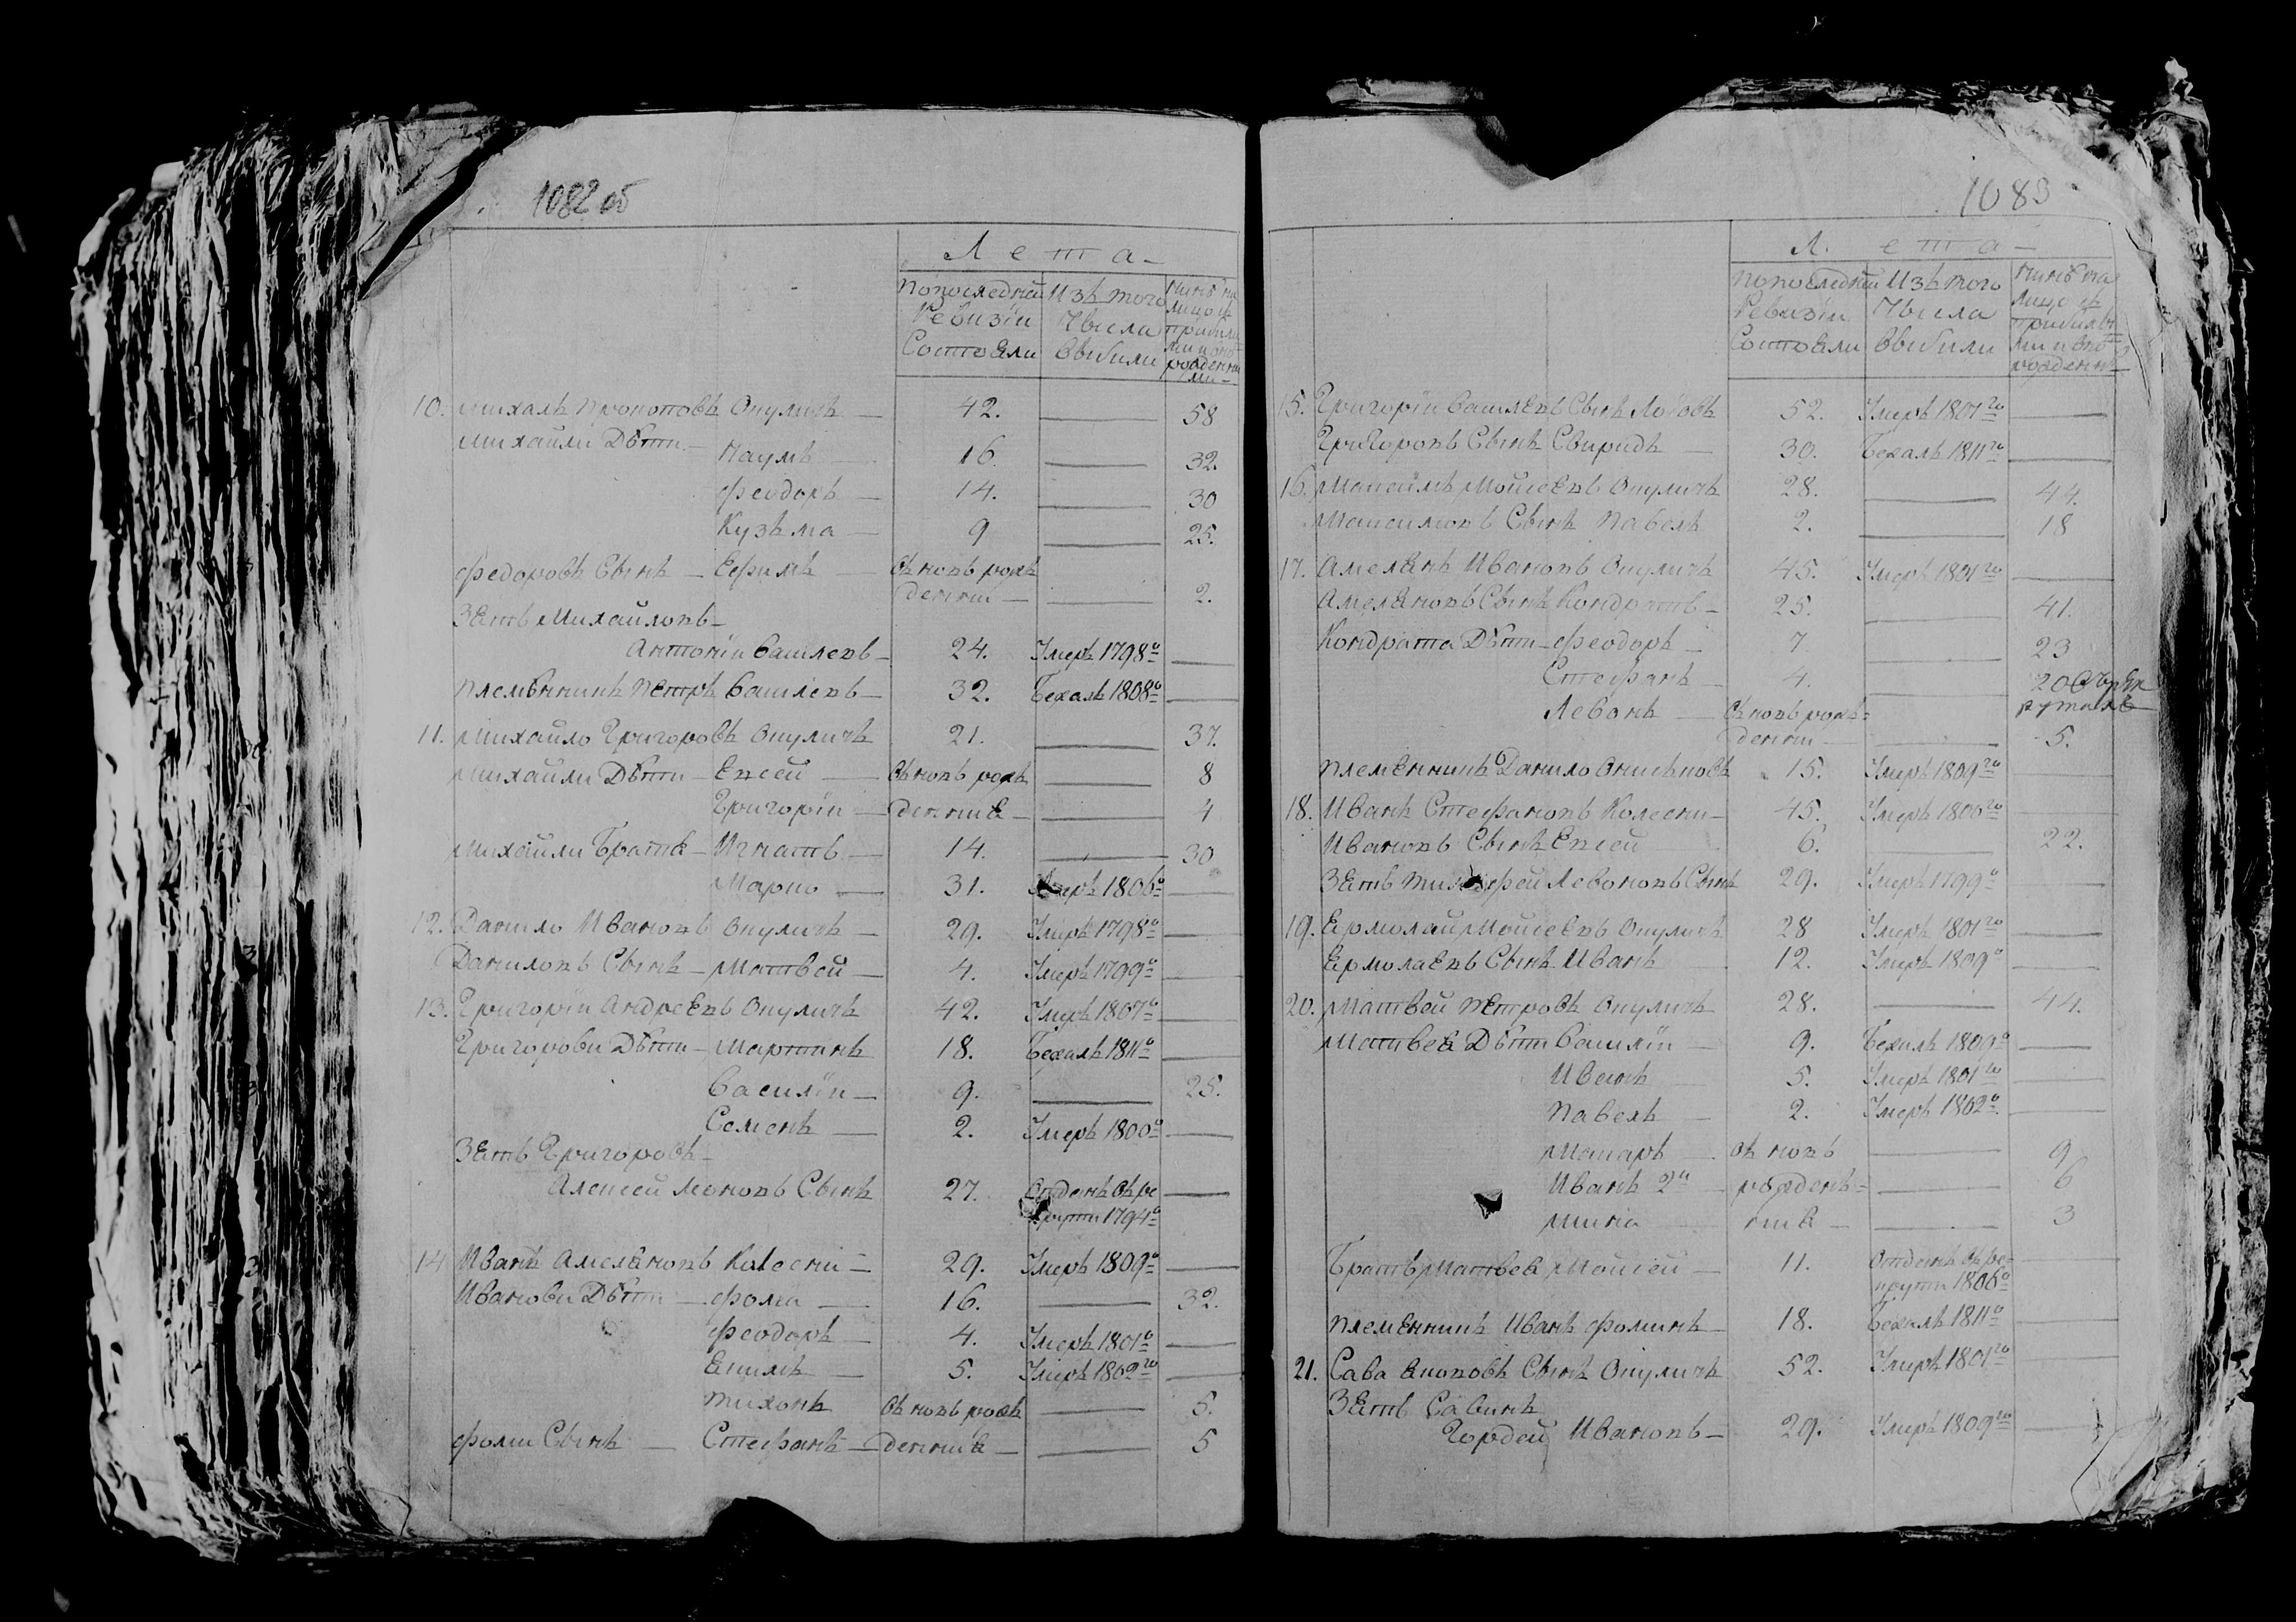 1082 об
Лета
Попоследней Изъ того Ныне на
Ревизіи Числа лицо съ
Состояли выбыли прибылы
ми и вно
рожденны
ми
10. Михалъ Прокоповъ Окуличъ — 42. — 58
Михайли Дѣти — Наумъ — 16. — 32.
Феодоръ — 14. — 30
Кузьма — 9 — 25.
Федоровъ Сынъ — Ефимъ — въ новъ рож
дении — 2.
Зять Михайловъ —
Антоній Василевъ — 24. Умеръ 1798го —
Племянникъ Петръ Василевъ — 32. Бежалъ 1808го —
11. Михайло Григоровъ Окуличъ 21. — 37.
Михайли Дѣти — Евсей — въ новъ рож — 8
Григорій — дения — 4
Михайли Брата — Игнатъ — 14. — 30
Марко — 31. Умеръ 1806го —
12. Данило Ивановъ Окуличъ — 29. Умеръ 1798го —
Даниловъ Сынъ — Матвей — 4. Умеръ 1799го —
13. Григорій Андреевъ Окуличъ 42. Умеръ 1807го —
Григорови Дѣти — Мартинъ 18. Бежалъ 1811го —
Василій — 9. — 25.
Семенъ — 2. Умеръ 1800го —
Зять Григоровъ —
Алексей Леоновъ Сынъ 27. Отданъ въ ре —
круты 1794го
14 Иванъ Амеляновъ Колесни — 29. Умеръ 1809го —
Иванови Дѣти — Фома — 16. — 32.
Феодоръ — 4. Умеръ 1801го —
Якимъ — 5. Умеръ 1802го —
Тихонъ въ новъ рож — 5.
Фоми Сынъ — Стефанъ — дения — 5
1083
Лета
Попоследней Изъ того Ныне на
Ревизіи Числа лицо съ
Состояли выбыли прибылы
ми и вно
рожденны
15. Григорій Василевъ Сынъ 52. Умеръ 1807го —
Григоровъ Сынъ Свиридъ — 30. Бежалъ 1811го —
16. Максимъ Мойсеевъ Окуличъ 28. — 44.
Максимовъ Сынъ Павелъ 2. — 18
17. Амелянъ Ивановъ Окуличъ 45. Умеръ 1801го —
Амеляновъ Сынъ Кондратъ — 25. — 41.
Кондрата Дѣти — Феодоръ — 7. — 23
Стефанъ — 4. — 20
Левонъ — въ новъ рож=
дении — 5.
Племянникъ Данило 15. Умеръ 1809го
18. Иванъ Стефановъ Колесни — 45. Умеръ 1800го
Ивановъ Сынъ Евсей 6. — 22.
Зять Тимофей Левоновъ Сынъ 29. Умеръ 1799го —
19. Ермолай Мойсеевъ Окуличъ 28 Умеръ 1801го —
Ермолаевъ Сынъ Иванъ 12. Умеръ 1809го —
20. Матвей Петровъ Окуличъ 28. — 44.
Матвея Дѣти Василій — 9. Бежалъ 1809го —
Иванъ 5. Умеръ 1801го —
Павелъ — 2. Умеръ 1802го —
Макаръ — въ новъ — 9
Иванъ 2й — рожден= — 6
Мина — ния — 3
Братъ Матвея Мойсей — 11. Отданъ въ ре= —
круты 1806го
Племянникъ Иванъ Фоминъ — 18. Бежалъ 1811го —
21. Сава Сынъ Окуличъ 52. Умеръ 1801го —
Зять Савинъ
Гордей Ивановъ — 29. Умеръ 1809го —